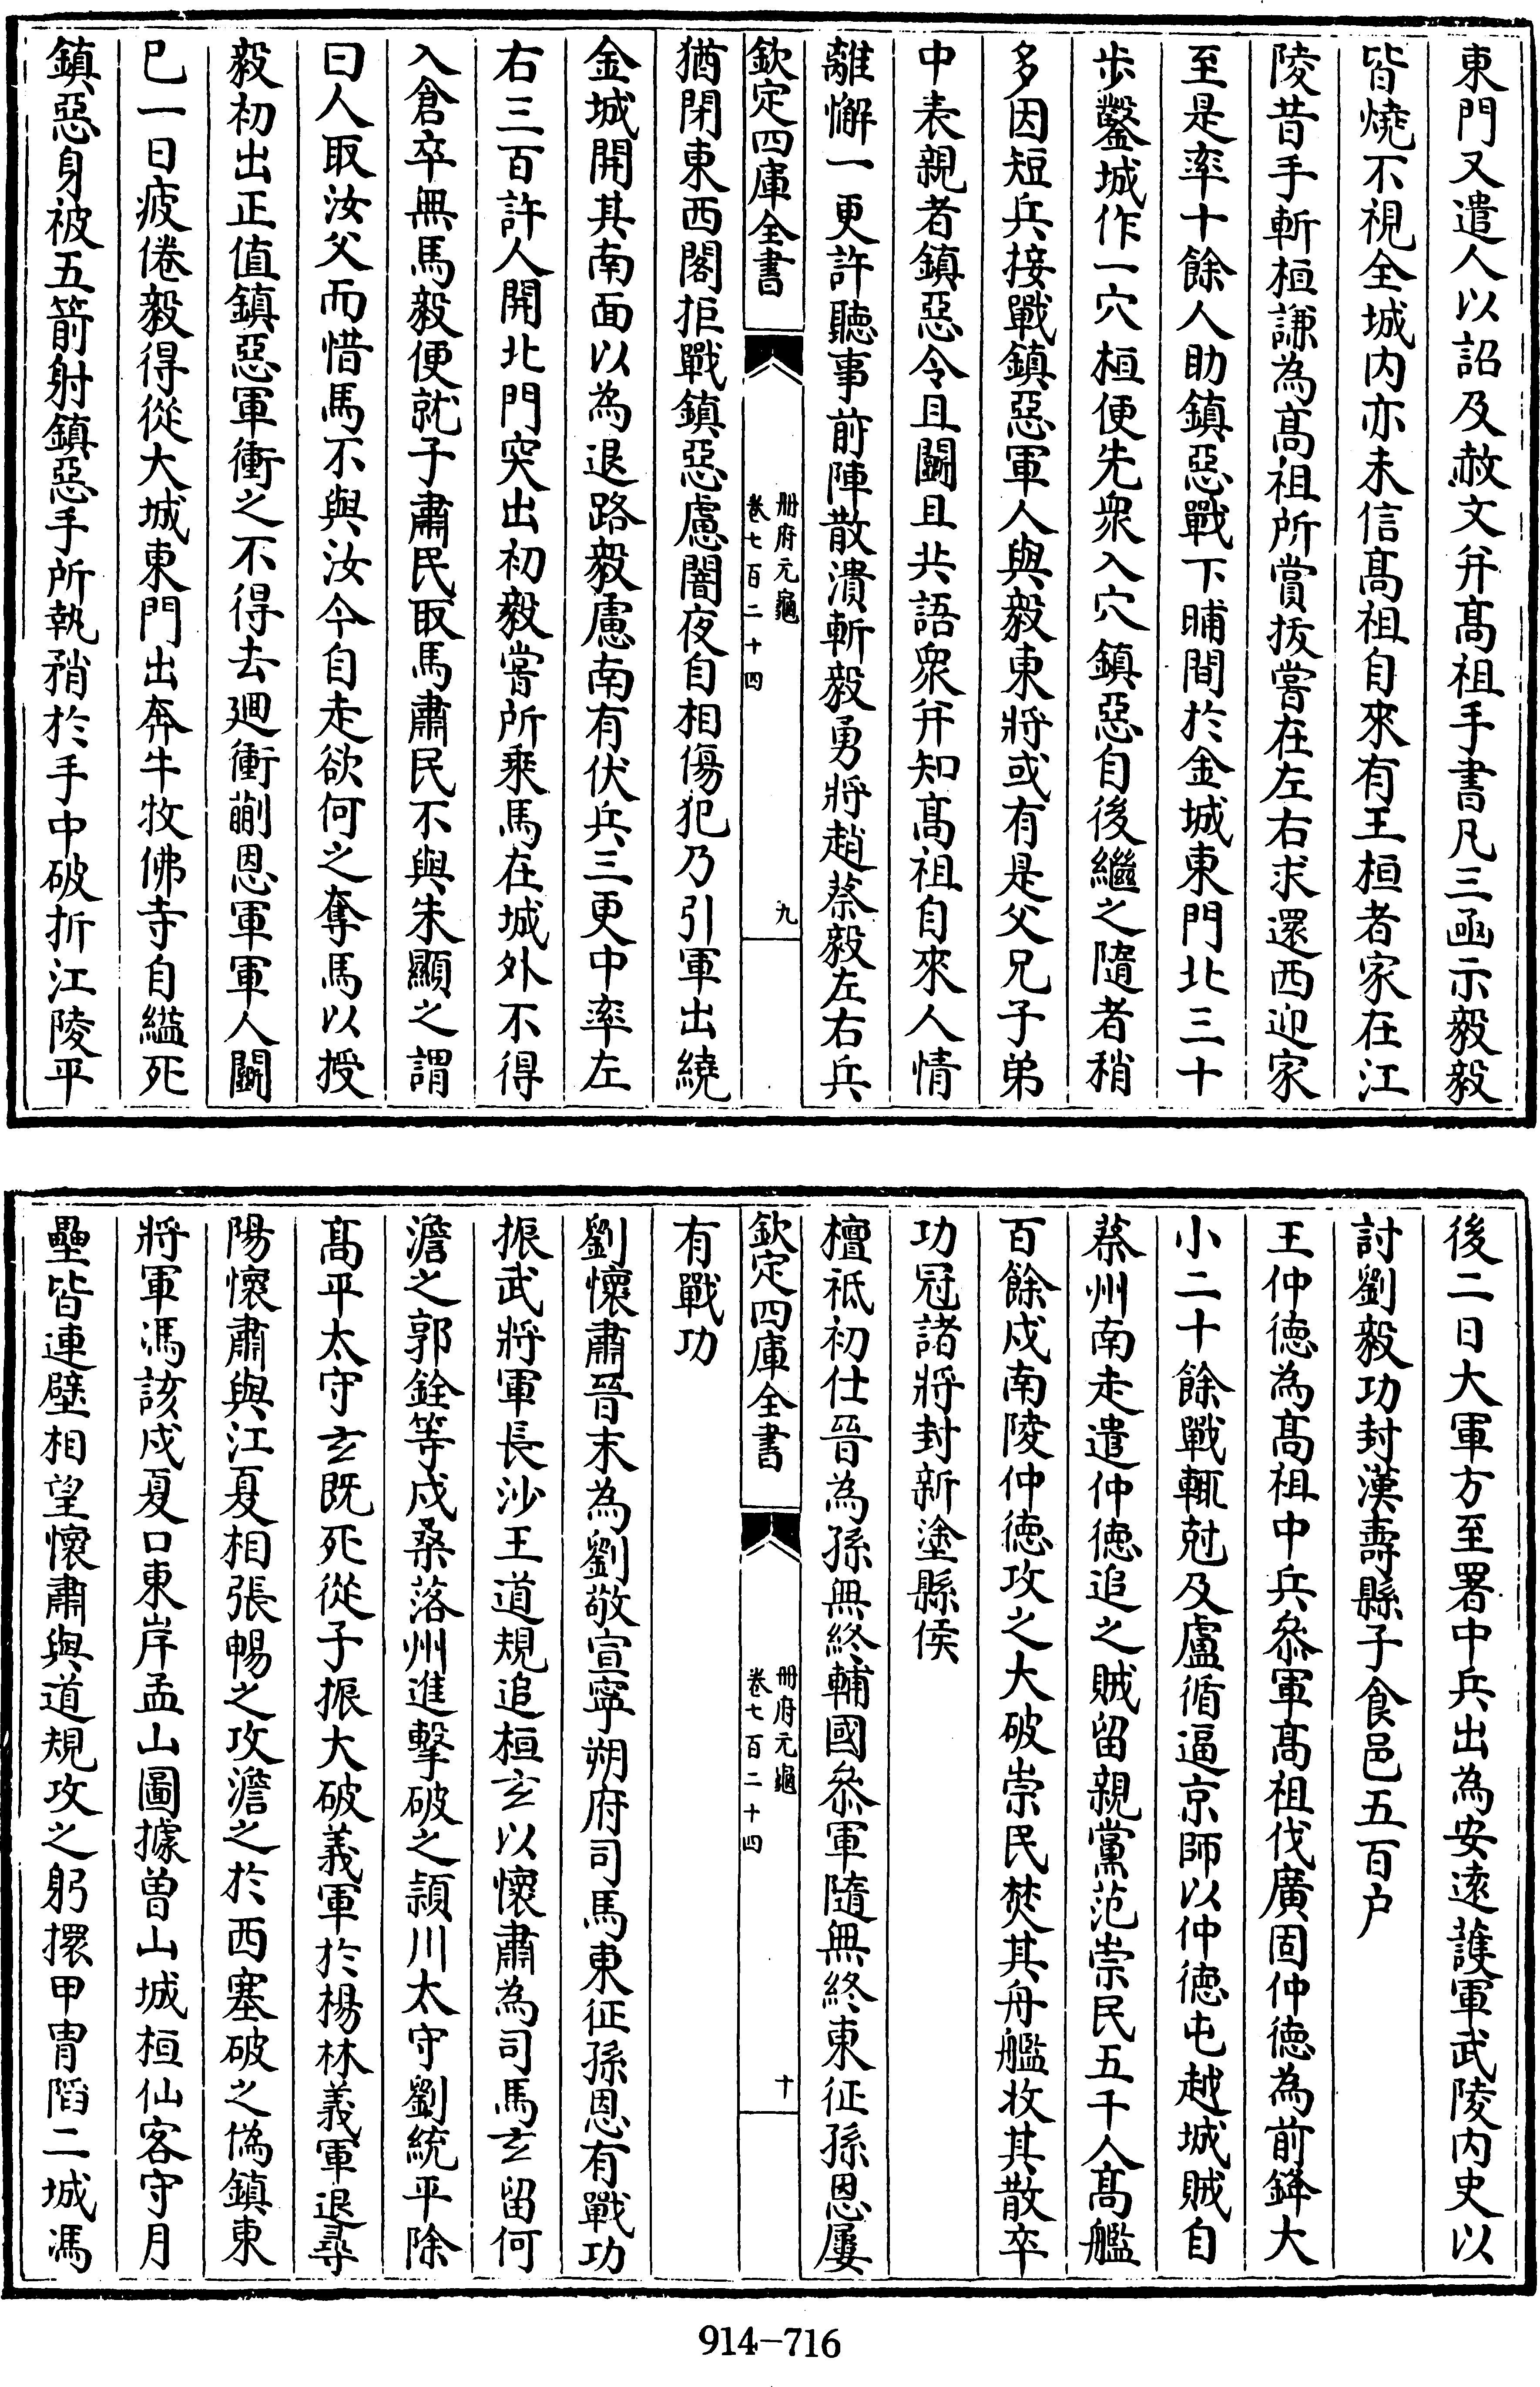 東門又遣人以詔及赦文并髙祖手書凡三函示毅毅
皆燒不視全城内亦未信髙祖自來有王桓者家在江
陵昔手斬桓謙為髙祖所賞拔嘗在左右求還西迎家
至是率十餘人助鎮惡戰下晡間於金城東門北三十
歩鑿城作一穴桓便先衆入穴鎮惡自後繼之隨者稍
多因短兵接戰鎮惡軍人與毅東將或有是父兄子弟
中表親者鎮惡令且鬭且共語衆并知髙祖自來人情
離懈一更許聽事前陣散潰斬毅勇將趙蔡毅左右兵
欽定四庫全書
冊府元龜
卷七百二十四
九
猶閉東西閤拒戰鎮惡慮闇夜自相傷犯乃引軍出繞
金城開其南面以為退路毅慮南有伏兵三更中率左
右三百許人開北門突出初毅嘗所乘馬在城外不得
入倉卒無馬毅便就子肅民取馬肅民不與朱顯之謂
曰人取汝父而惜馬不與汝今自走欲何之奪馬以授
毅初出正值鎮惡軍衝之不得去廻衝蒯恩軍軍人鬭
巳一日疲倦毅得從大城東門出奔牛牧佛寺自縊死
鎮惡身被五箭射鎮惡手所執矟於手中破折江陵平
後二日大軍方至署中兵出為安逺護軍武陵内史以
討劉毅功封漢壽縣子食邑五百户
王仲徳為髙祖中兵叅軍髙祖伐廣固仲徳為前鋒大
小二十餘戰輒尅及盧循逼京師以仲徳屯越城賊自
蔡州南走遣仲徳追之賊留親黨范崇民五千人髙艦
百餘戍南陵仲徳攻之大破崇民焚其舟艦收其散卒
功冠諸將封新塗縣侯
檀祗初仕晉為孫無終輔國叅軍隨無終東征孫恩屢
欽定四庫全書
冊府元龜
卷七百二十四
十
有戰功
劉懷肅晉末為劉敬宣寧朔府司馬東征孫恩有戰功
振武將軍長沙王道規追桓玄以懷肅為司馬玄留何
澹之郭銓等戍桑落州進擊破之頴川太守劉統平除
髙平太守玄既死從子振大破義軍於楊林義軍退尋
陽懷肅與江夏相張暢之攻澹之於西塞破之偽鎮東
將軍馮該戍夏口東岸孟山圖據曽山城桓仙客守月
壘皆連壁相望懷肅與道規攻之躬擐甲冑陷二城馮
914-716